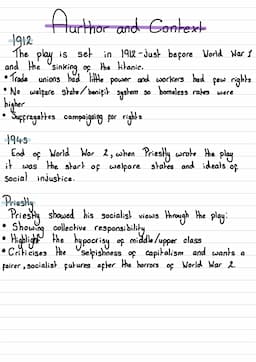 Aurthor and Context
1912
The play is set in 1912 - Just before World War 1
and the sinking of the titanic.
• Trade unions had little power and workers had few rights
• No welfare state/benifit system so homeless rates were
higher
• Suffragettes campaigning for rights
1945
End of World War 2, when Priestly wrote the play
it was the start of welfare states and ideals of
social injustice.
Priestly
Priestly showed his socialist views through the play:
• Showing collective responsibility
• Highlight the hypocrisy of middle/upper class
• Criticises the selfishness of capitalism and wants a
fairer, socialist future after the horrors of World War 2